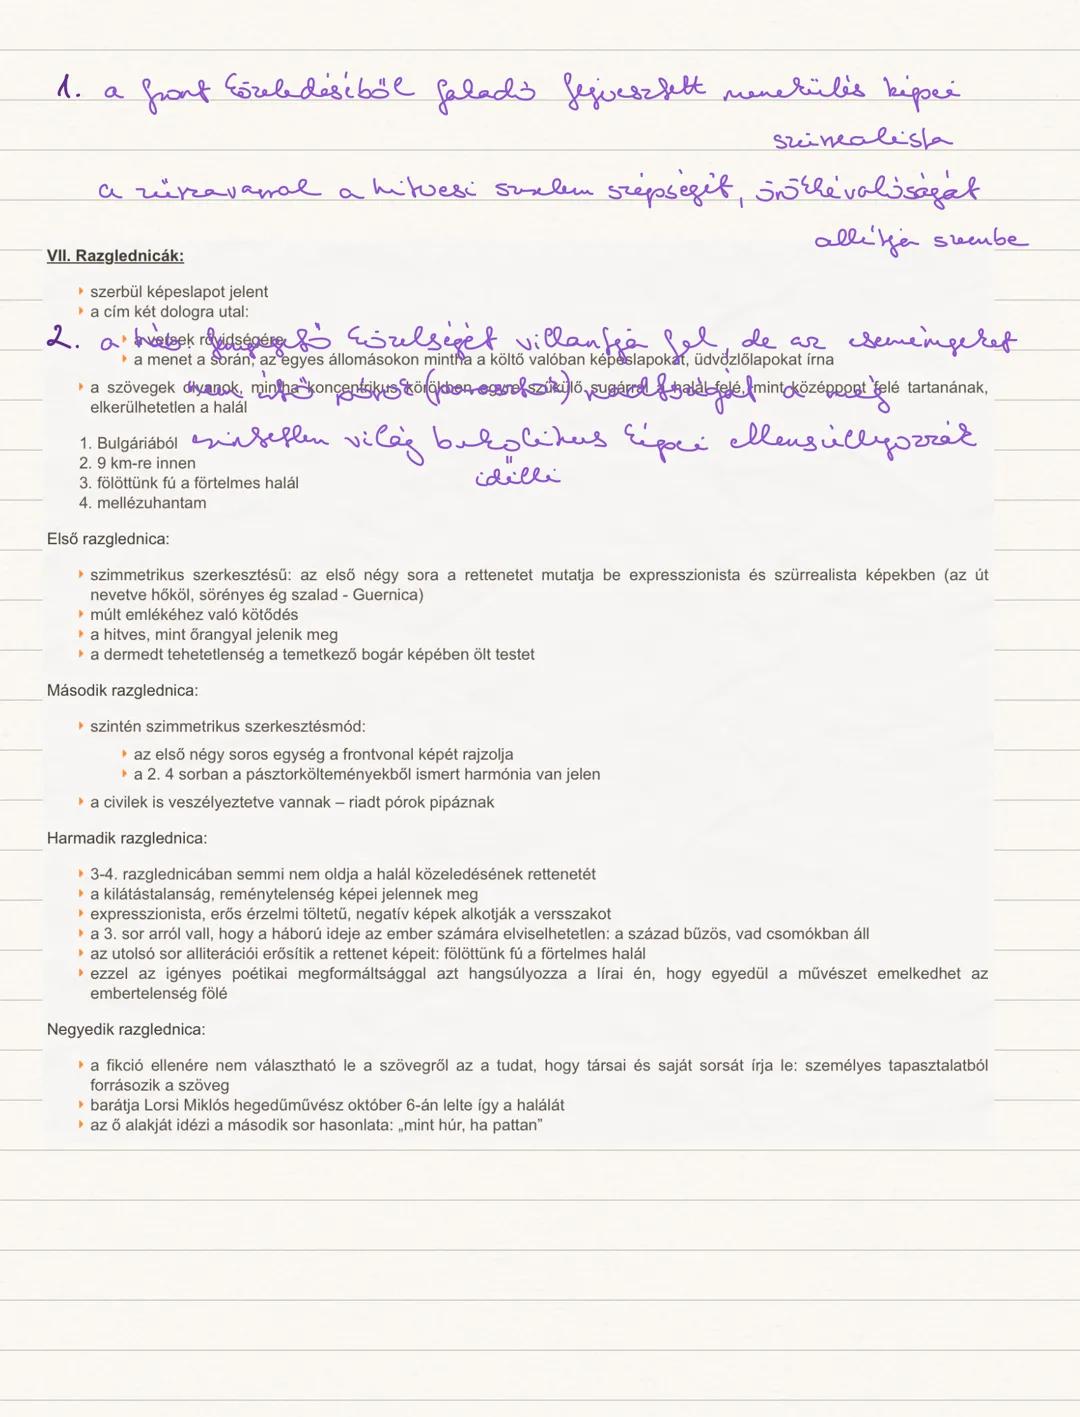 1. a front közeledéséből faladó fejvesztett menekülés képei
szürrealista
a zűrzavarral a hitvesi szerelem szépségét, örökkévalóságát
állítja szembe
VII. Razglednicák:
szerbül képeslapot jelent
a cím két dologra utal:
a versek rövidségére
2. a közelségét villantja fel, de az eseményeket
a menet a során, az egyes állomásokon mintha a költő valóban képeslapokat, üdvözlőlapokat írna
a szövegek olyanok, mintha koncentrikus körökben egyre szűkülő sugárral a halál felé, mint középpont felé tartanának,
nem értő pórok a még
elkerülhetetlen a halál
1. Bulgáriából
érintetlen világ bukolikus képei ellensúlyozzák
2. 9 km-re innen
idilli
3. fölöttünk fú a förtelmes halál
4. mellézuhantam
Első razglednica:
szimmetrikus szerkesztésű: az első négy sora a rettenetet mutatja be expresszionista és szürrealista képekben (az út
nevetve hőköl, sörényes ég szalad - Guernica)
múlt emlékéhez való kötődés
a hitves, mint őrangyal jelenik meg
a dermedt tehetetlenség a temetkező bogár képében ölt testet
Második razglednica:
szintén szimmetrikus szerkesztésmód:
az első négy soros egység a frontvonal képét rajzolja
a 2. 4 sorban a pásztorkölteményekből ismert harmónia van jelen
a civilek is veszélyeztetve vannak – riadt pórok pipáznak
Harmadik razglednica:
3-4. razglednicában semmi nem oldja a halál közeledésének rettenetét
a kilátástalanság, reménytelenség képei jelennek meg
expresszionista, erős érzelmi töltetű, negatív képek alkotják a versszakot
a 3. sor arról vall, hogy a háború ideje az ember számára elviselhetetlen: a század bűzös, vad csomókban áll
az utolsó sor alliterációi erősítik a rettenet képeit: fölöttünk fú a förtelmes halál
ezzel az igényes poétikai megformáltsággal azt hangsúlyozza a lírai én, hogy egyedül a művészet emelkedhet az
embertelenség fölé
Negyedik razglednica:
a fikció ellenére nem választható le a szövegről az a tudat, hogy társai és saját sorsát írja le: személyes tapasztalatból
forrásozik a szöveg
barátja Lorsi Miklós hegedűművész október 6-án lelte így a halálát
az ő alakját idézi a második sor hasonlata: „mint húr, ha pattan”